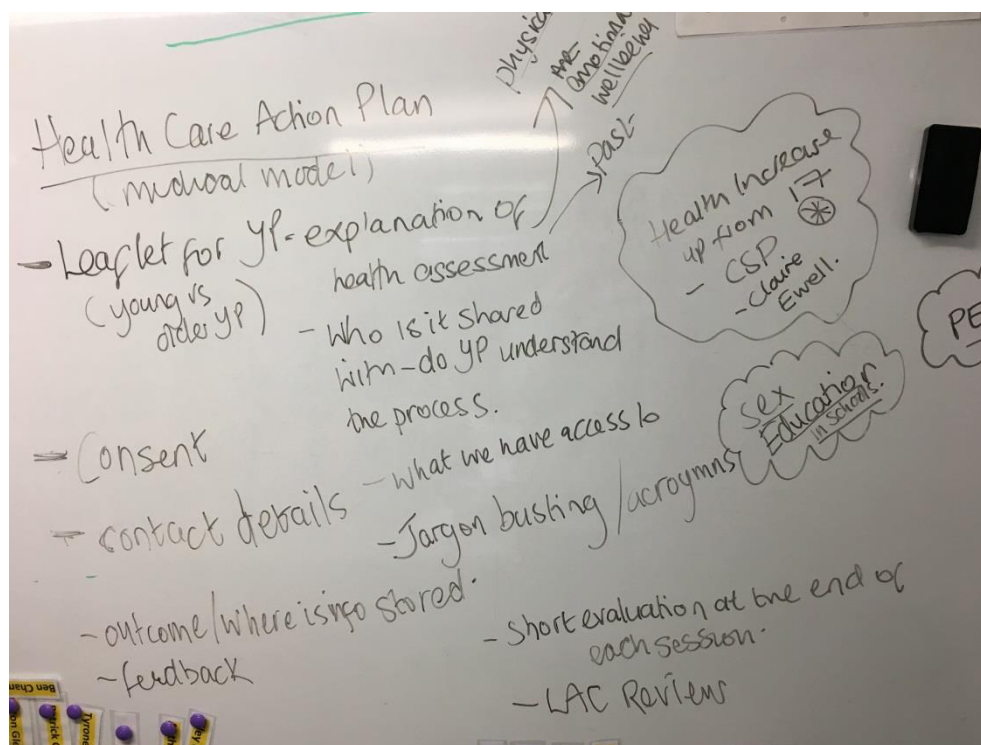 Health Care Action Plan
(medical model)
- Leaflet for YP - explanation of
health assessment
(young vs
older YP)
physical
emotional
wellbeing
Past
- Who is it shared
with - do YP understand
the process.
- Consent
- What we have access to
- contact details
- Jargon busting / acroymns
- outcome / where is info stored.
- feedback
- Short evaluation at the end of
each session.
- LAC Reviews
Health Increase
up from 17
- CSP
- Claire
Ewell.
Sex
Education
in schools.
PE
Ben Chan
Tyrone